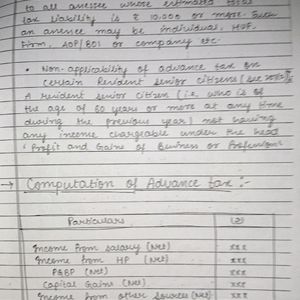 to all assessee whose estimated total
tax liability is ₹ 10,000 or more. Such
an assessee may be individual, HUF,
Firm, AOP/BOI or company etc.
• Non-applicability of advance tax on
certain Resident senior citizens (sec 207)
A resident senior citizen (i.e. who is of
the age of 60 years or more at any time
during the previous year) not having
any income chargeable under the head
'Profit and Gains of Business or Profession'
→ Computation of Advance tax :-
Particulars (₹)
Income from salary (Net) xxx
Income from HP (Net) xxx
PGBP (Net) xxx
Capital Gains (Net) xxx
Income from other sources (Net) xxx